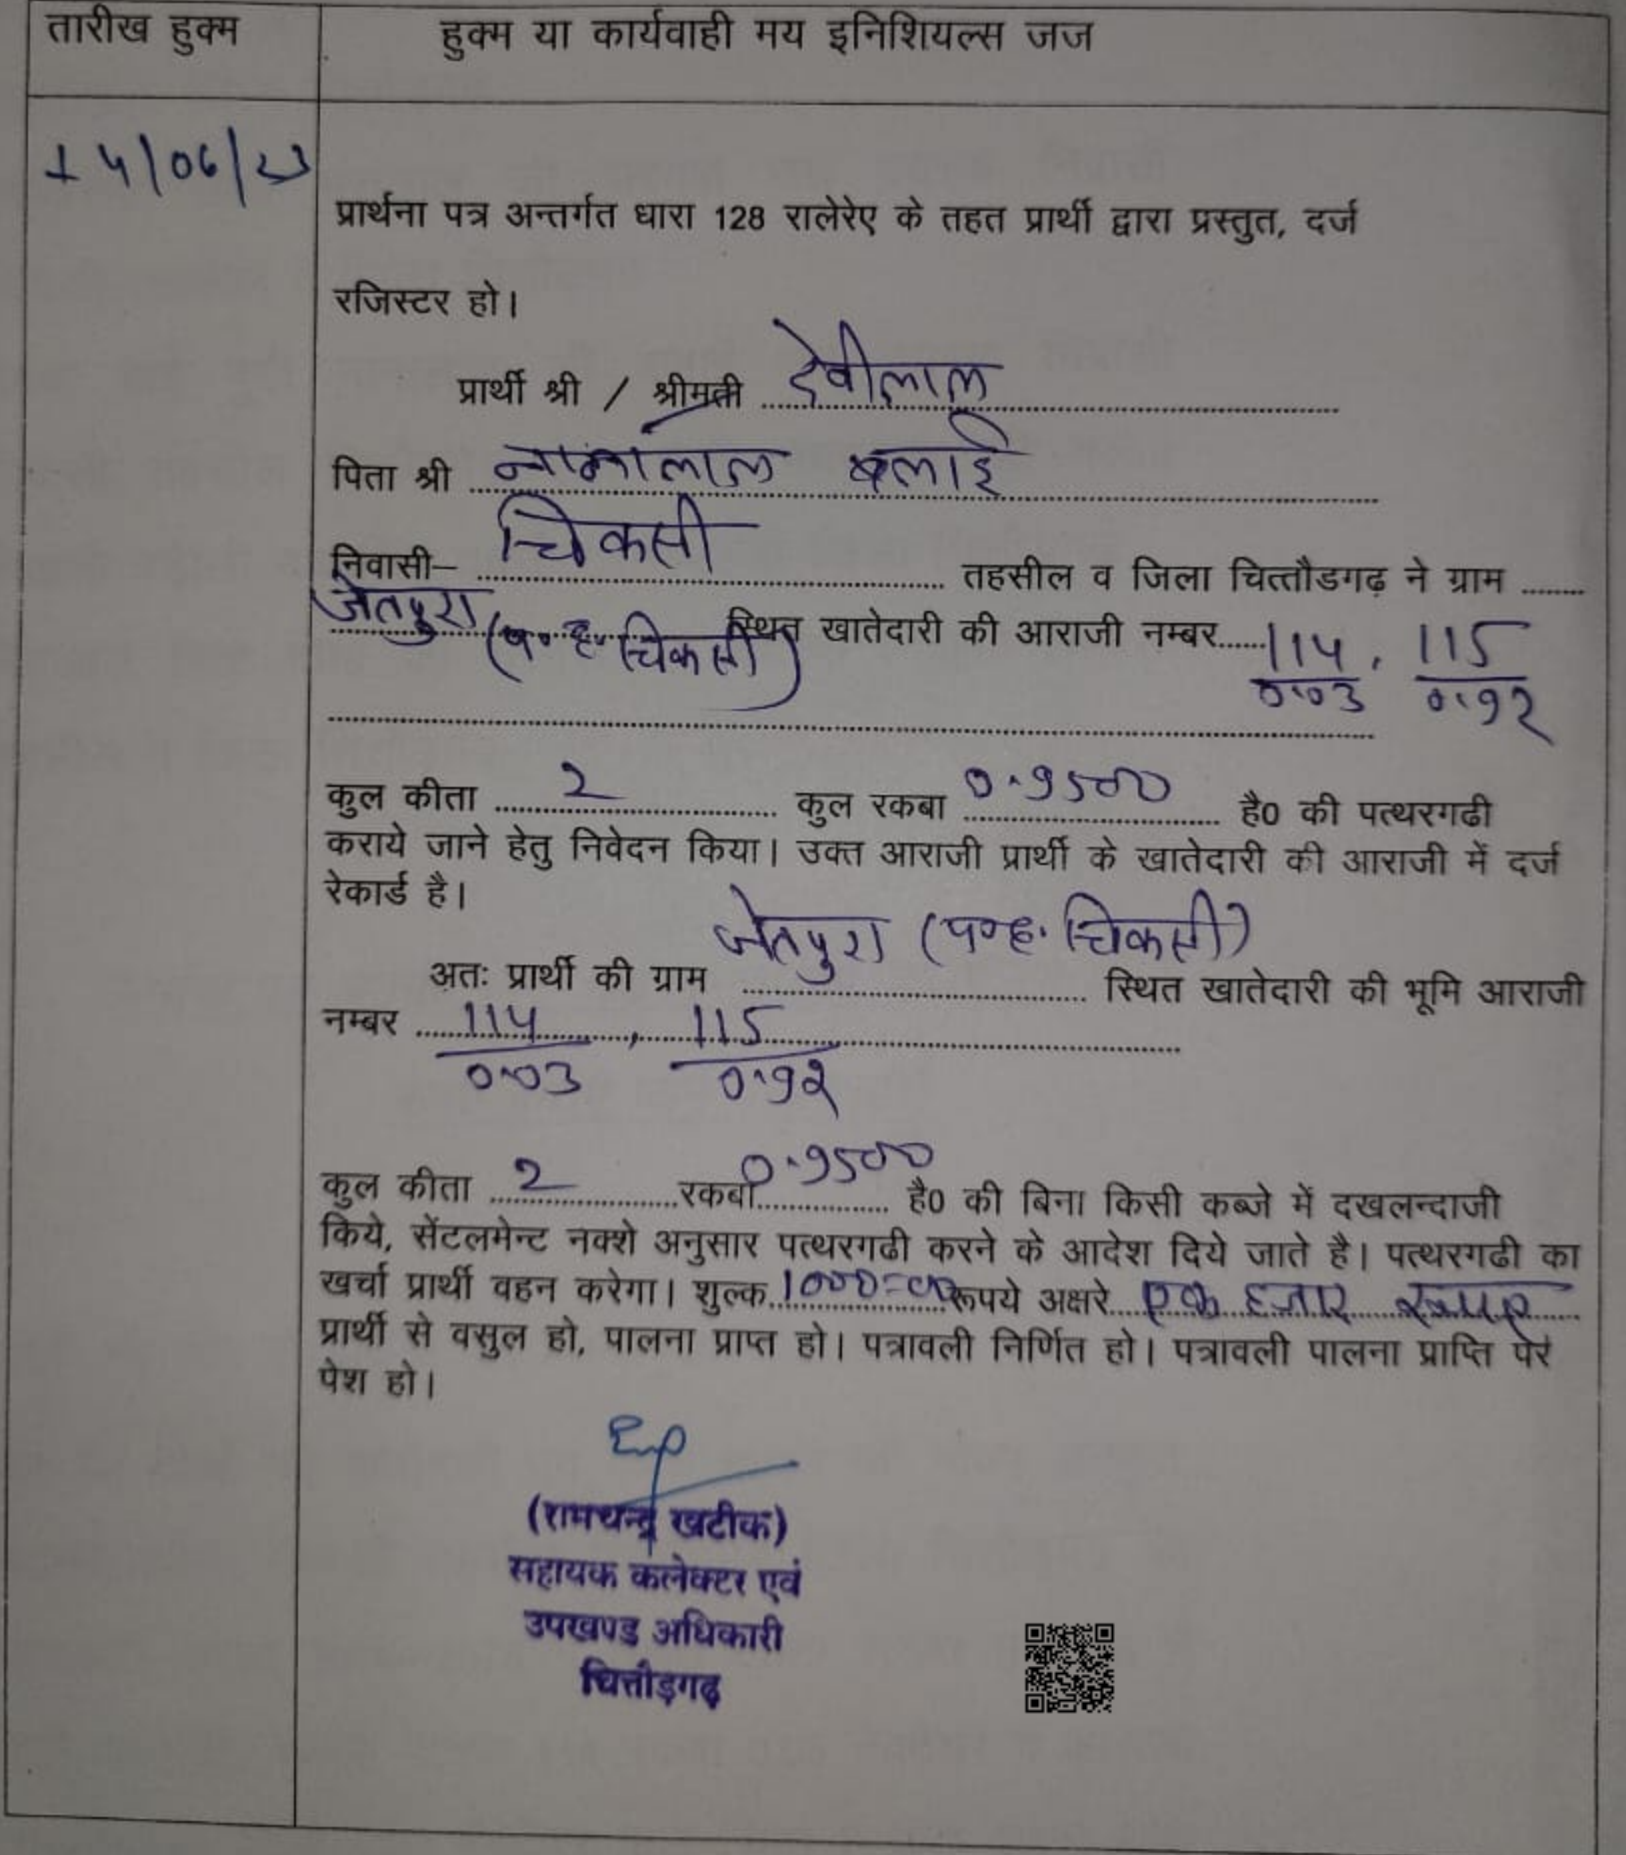 तारीख हुक्म
हुक्म या कार्यवाही मय इनिशियल्स जज
14/06/23
प्रार्थना पत्र अन्तर्गत धारा 128 रालेरेए के तहत प्रार्थी द्वारा प्रस्तुत, दर्ज
रजिस्टर हो।
प्रार्थी श्री / श्रीमती देवीलाल
पिता श्री बलाई
निवासी– चिकसी तहसील व जिला चित्तौडगढ़ ने ग्राम
जेतपुरा (प.ह. चिकसी) स्थित खातेदारी की आराजी नम्बर 114, 115
0.03 0.92
कुल कीता 2 कुल रकबा 0.9500 है0 की पत्थरगढी
कराये जाने हेतु निवेदन किया। उक्त आराजी प्रार्थी के खातेदारी की आराजी में दर्ज
रेकार्ड है।
अतः प्रार्थी की ग्राम जेतपुरा (प.ह. चिकसी) स्थित खातेदारी की भूमि आराजी
नम्बर 114, 115
0.03 0.92
कुल कीता 2 रकबा 0.9500 है0 की बिना किसी कब्जे में दखलन्दाजी
किये, सेंटलमेन्ट नक्शे अनुसार पत्थरगढी करने के आदेश दिये जाते है। पत्थरगढी का
खर्चा प्रार्थी वहन करेगा। शुल्क 1000=00 रूपये अक्षरे एक हजार रूपए
प्रार्थी से वसुल हो, पालना प्राप्त हो। पत्रावली निर्णित हो। पत्रावली पालना प्राप्ति पर
पेश हो।
(रामचन्द्र खटीक)
सहायक कलेक्टर एवं
उपखण्ड अधिकारी
चित्तौड़गढ़